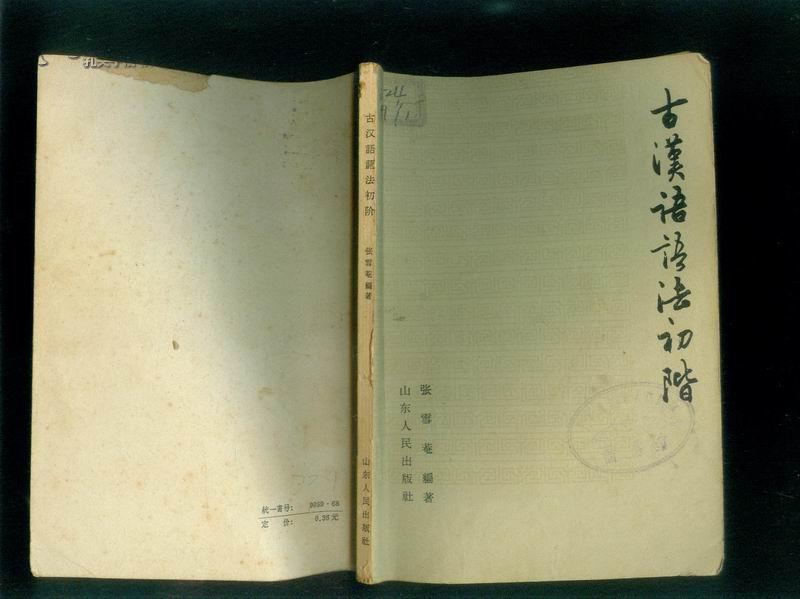 古漢語語法初階
张雪菴編著
山东人民出版社
古汉語語法初阶
张雪菴編著
山东人民出版社
統一書号: 9099·68
定 价: 0.36元